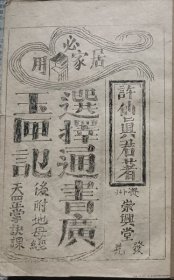 居家必用
許仙眞君著
崇興堂
發兑
選擇通書廣
玉匣記
後附地母經
天罡掌訣課